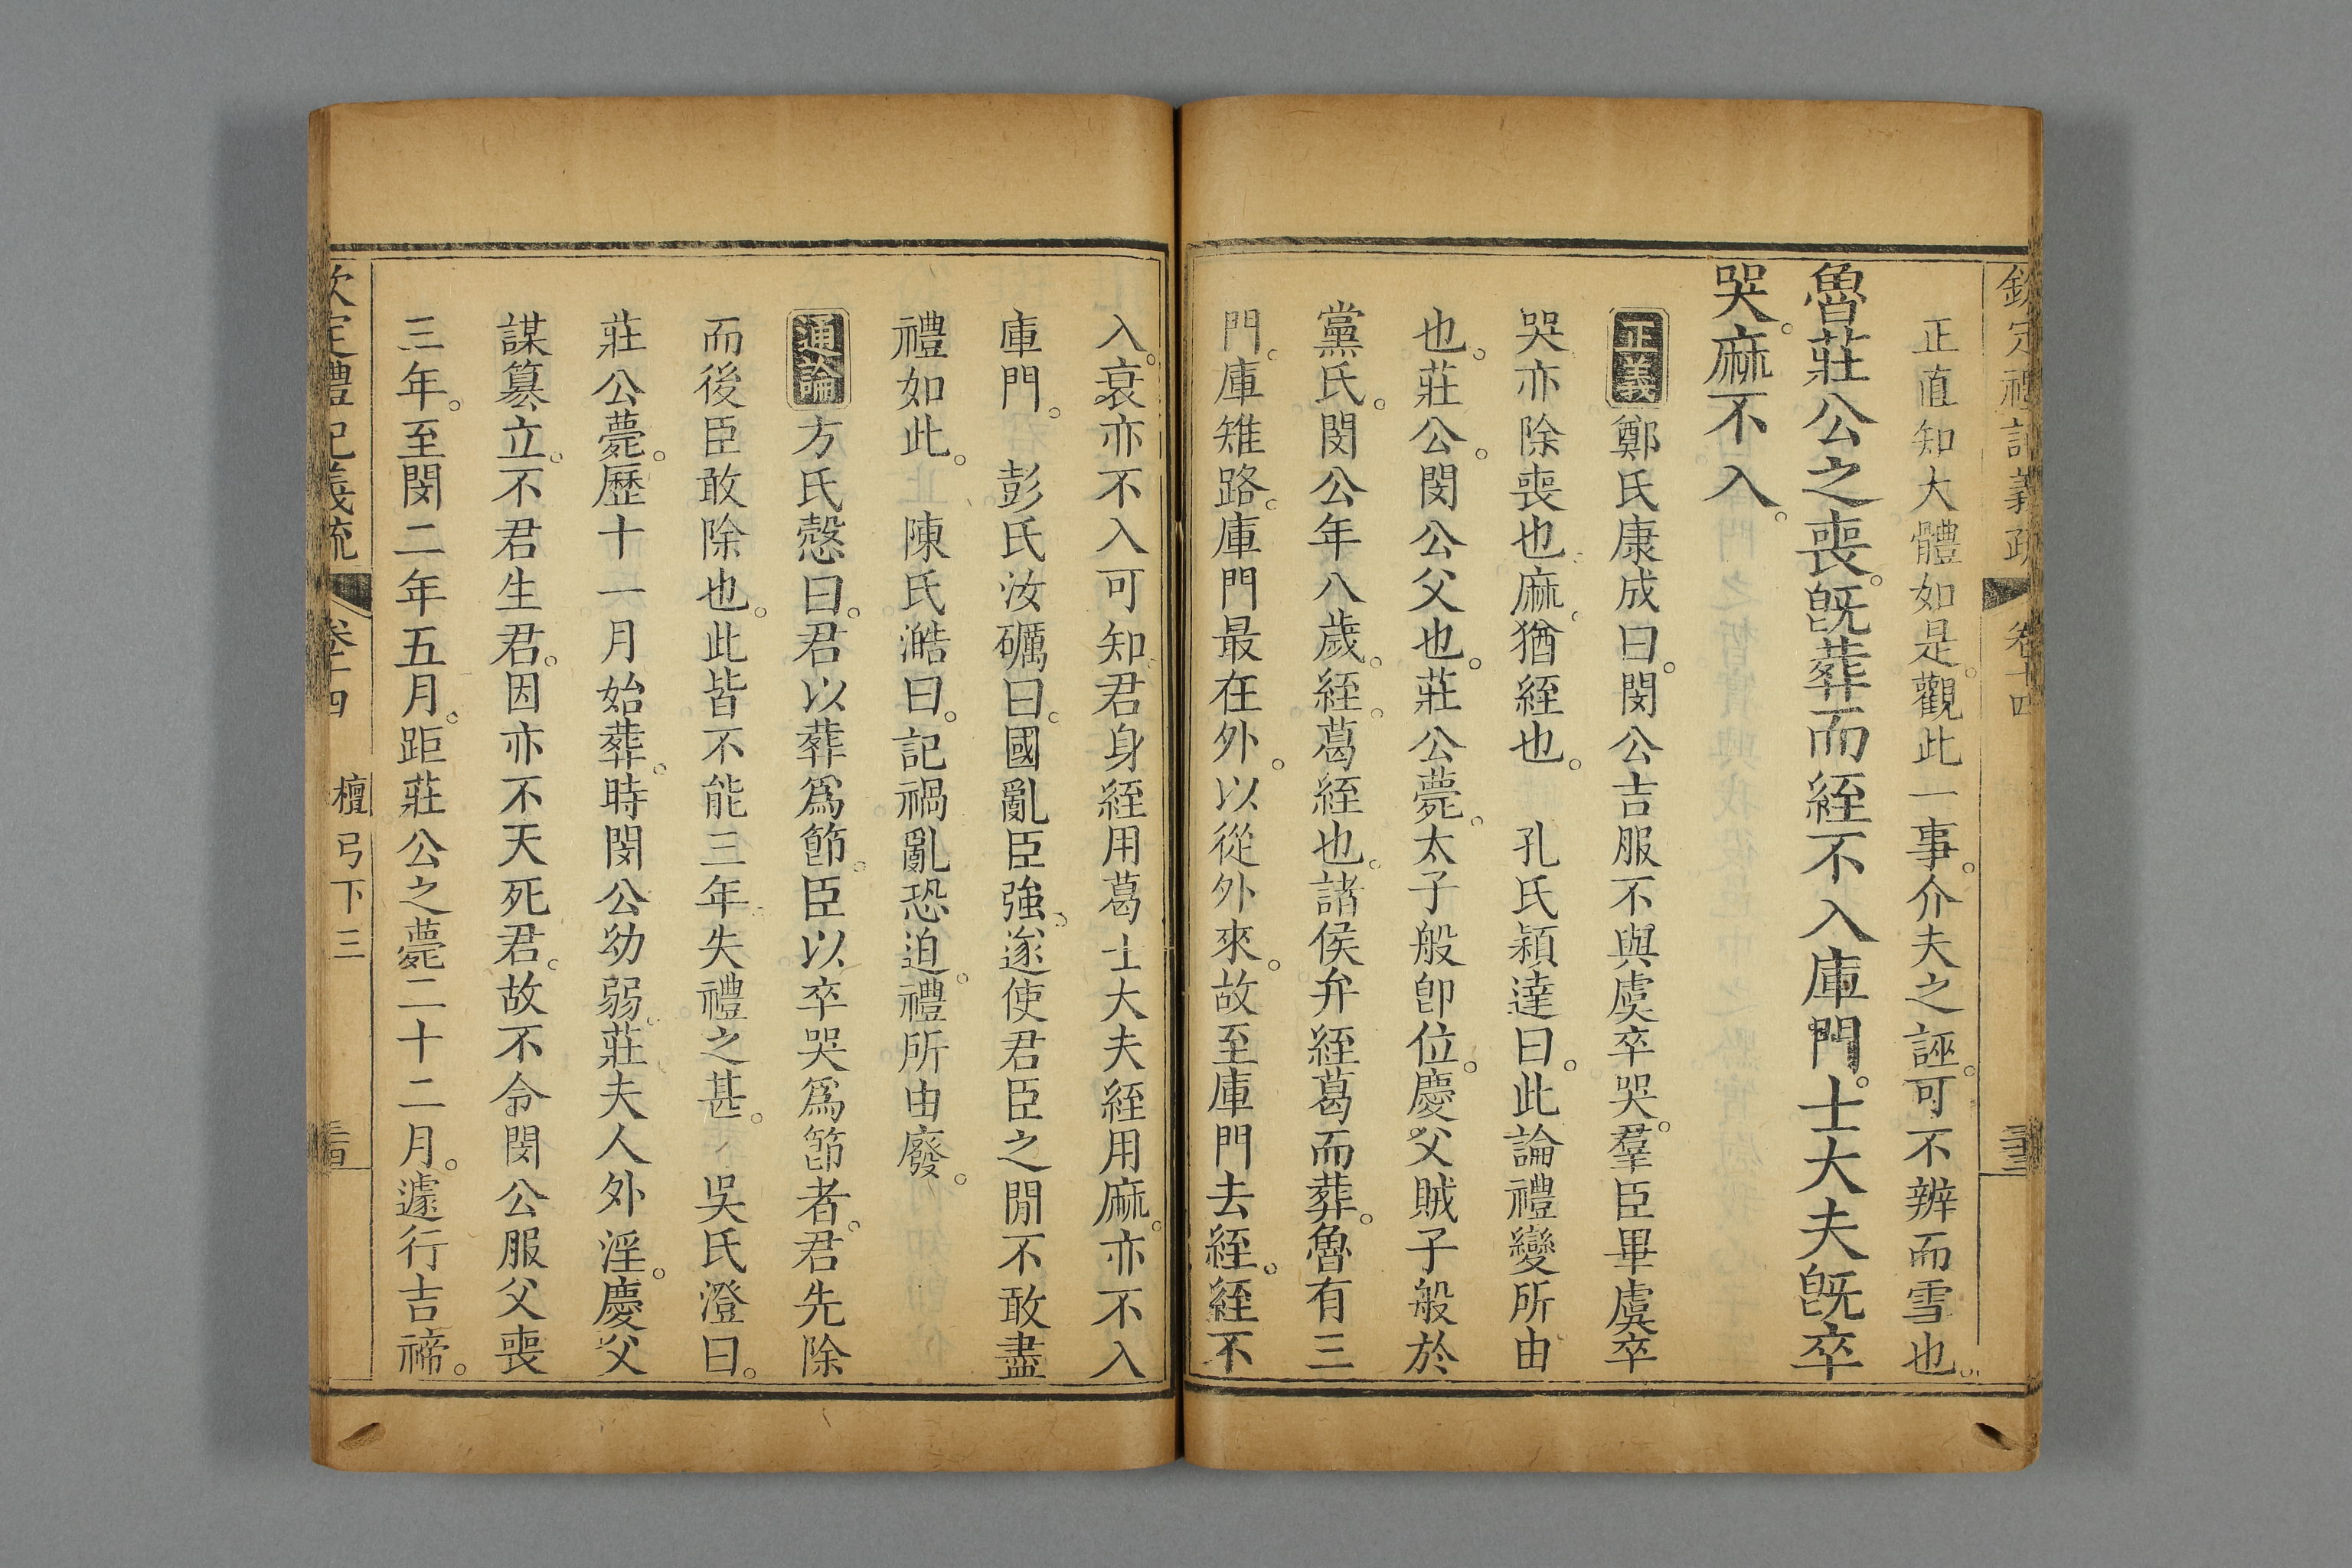 欽定禮記義疏 卷十四
正直知大體如是。觀此一事。介夫之誣。可不辨而雪也。
魯莊公之喪。旣葬而絰不入庫門。士大夫旣卒
哭。麻不入。
正義 鄭氏康成曰。閔公吉服不與虞卒哭。羣臣畢虞卒
哭亦除喪也。麻。猶絰也。 孔氏穎達曰。此論禮變所由
也。莊公。閔公父也。莊公薨。太子般卽位。慶父賊子般於
黨氏。閔公年八歲。絰。葛絰也。諸侯弁絰葛而葬。魯有三
門。庫雉路。庫門最在外。以從外來。故至庫門去絰。絰不
入。衰亦不入可知。君身絰用葛士大夫絰用麻。亦不入
庫門。 彭氏汝礪曰。國亂臣強。遂使君臣之閒不敢盡
禮如此。 陳氏澔曰。記禍亂恐迫。禮所由廢。
通論 方氏慤曰。君以葬爲節。臣以卒哭爲節者。君先除
而後臣敢除也。此皆不能三年失禮之甚。 吳氏澄曰。
莊公薨。歷十一月始葬。時閔公幼弱。莊夫人外淫。慶父
謀簒立。不君生君。因亦不天死君。故不令閔公服父喪
三年。至閔二年五月。距莊公之薨二十二月。遽行吉禘。
欽定禮記義疏 卷十四 檀弓下三